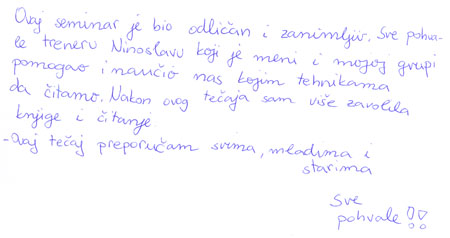 Ovaj seminar je bio odličan i zanimljiv. Sve pohva-
le treneru Ninoslavu koji je meni i mojoj grupi
pomogao i naučio nas kojim tehnikama
da čitamo. Nakon ovog tečaja sam više zavolila
knjige i čitanje
-Ovaj tečaj preporučam svima, mladima i
starima
Sve
pohvale!!